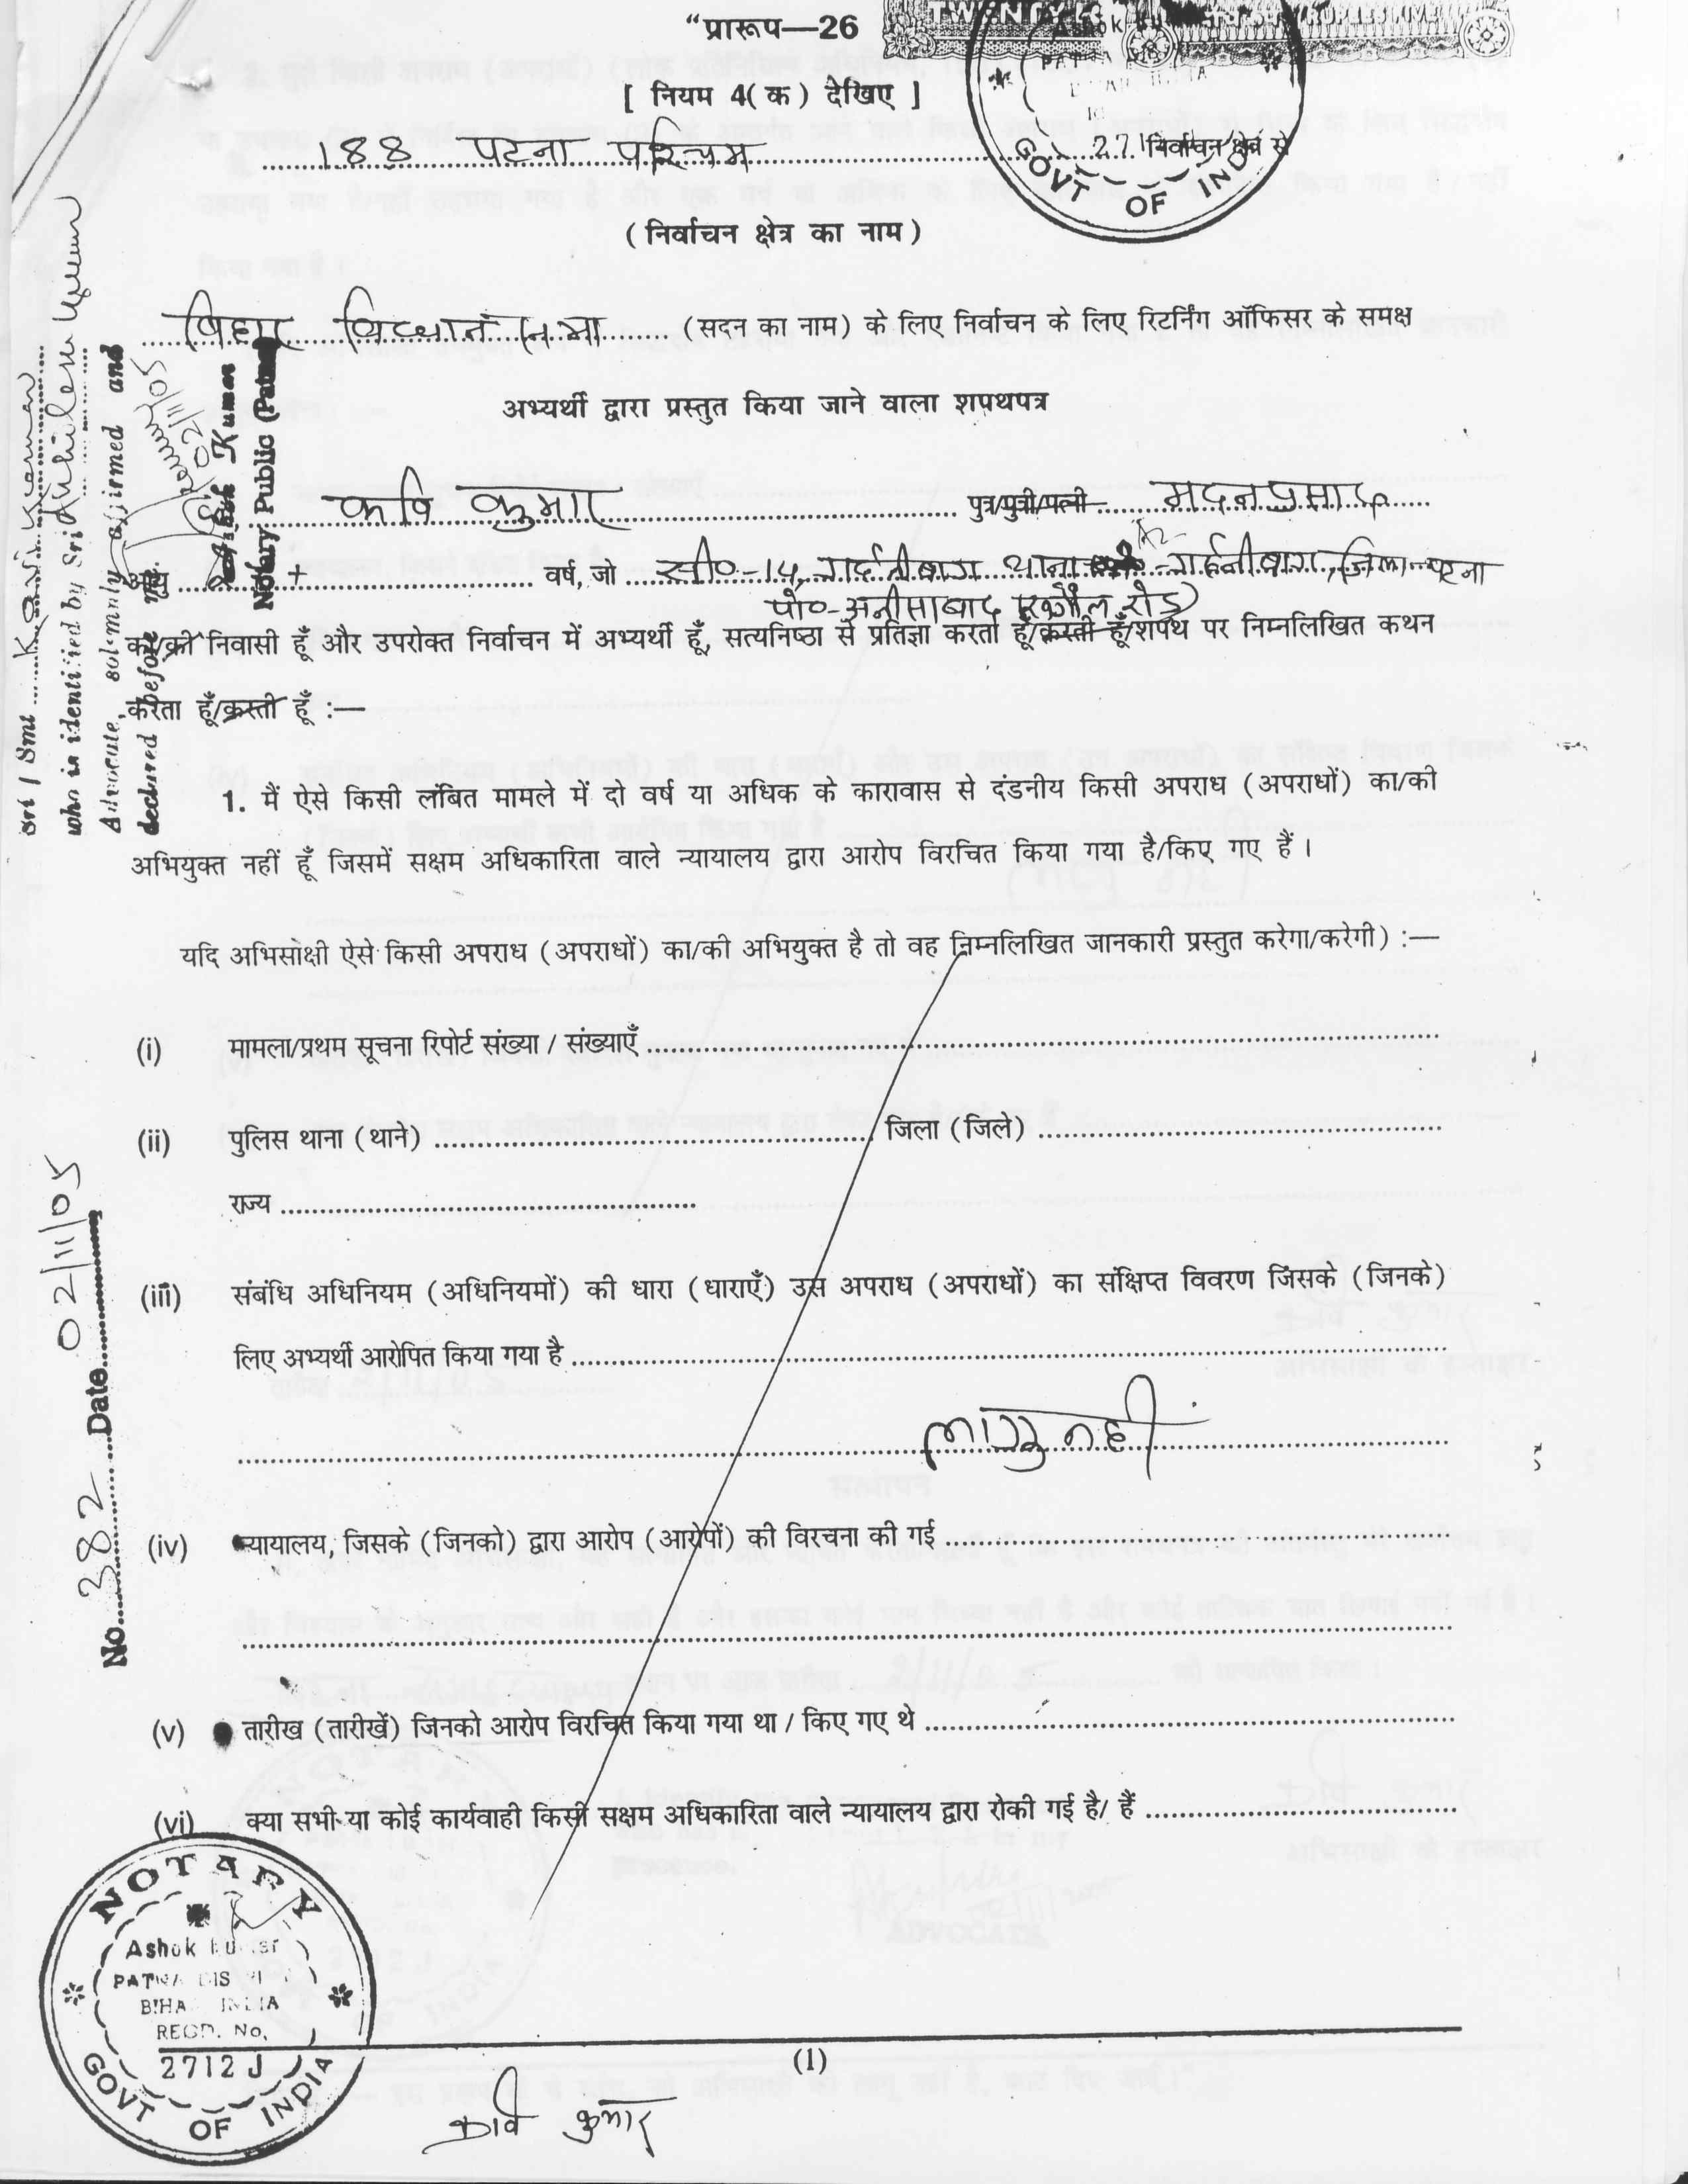 “प्रारूप—26
[ नियम 4( क ) देखिए ]
188 पटना पश्चिम निर्वाचन क्षेत्र से
( निर्वाचन क्षेत्र का नाम )
(सदन का नाम) के लिए निर्वाचन के लिए रिटर्निंग ऑफिसर के समक्ष
अभ्यर्थी द्वारा प्रस्तुत किया जाने वाला शपथपत्र
कवि कुमार पुत्र/पुत्री/पत्नी मदन प्रसाद
आयु वर्ष, जो गर्दनीबाग थाना गर्दनीबाग, जिला-पटना
पो०-अनीसाबाद रोड
का/की निवासी हूँ और उपरोक्त निर्वाचन में अभ्यर्थी हूँ, सत्यनिष्ठा से प्रतिज्ञा करता हूँ/करती हूँ/शपथ पर निम्नलिखित कथन
करता हूँ/करती हूँ :—
1. मैं ऐसे किसी लंबित मामले में दो वर्ष या अधिक के कारावास से दंडनीय किसी अपराध (अपराधों) का/की
अभियुक्त नहीं हूँ जिसमें सक्षम अधिकारिता वाले न्यायालय द्वारा आरोप विरचित किया गया है/किए गए हैं ।
यदि अभिसाक्षी ऐसे किसी अपराध (अपराधों) का/की अभियुक्त है तो वह निम्नलिखित जानकारी प्रस्तुत करेगा/करेगी) :—
(i) मामला/प्रथम सूचना रिपोर्ट संख्या / संख्याएँ
(ii) पुलिस थाना (थाने) जिला (जिले)
राज्य
(iii) संबंधि अधिनियम (अधिनियमों) की धारा (धाराएँ) उस अपराध (अपराधों) का संक्षिप्त विवरण जिसके (जिनके)
लिए अभ्यर्थी आरोपित किया गया है
लागु नही
(iv) न्यायालय, जिसके (जिनको) द्वारा आरोप (आरोपों) की विरचना की गई
(v) तारीख (तारीखें) जिनको आरोप विरचित किया गया था / किए गए थे
(vi) क्या सभी या कोई कार्यवाही किसी सक्षम अधिकारिता वाले न्यायालय द्वारा रोकी गई है/ हैं
(1)
कवि कुमार
Sri / Smt Kavi Kumar
who is identified by Sri
Advocate solemnly affirmed and
declared before me.
02/11/05
Kumar
Notary Public
No. 382 Date 02/11/05
NOTARY
Ashok Kumar
PATNA DIST
BIHAR INDIA
REGD. No.
2712 J
GOVT OF INDIA
GOVT OF INDIA